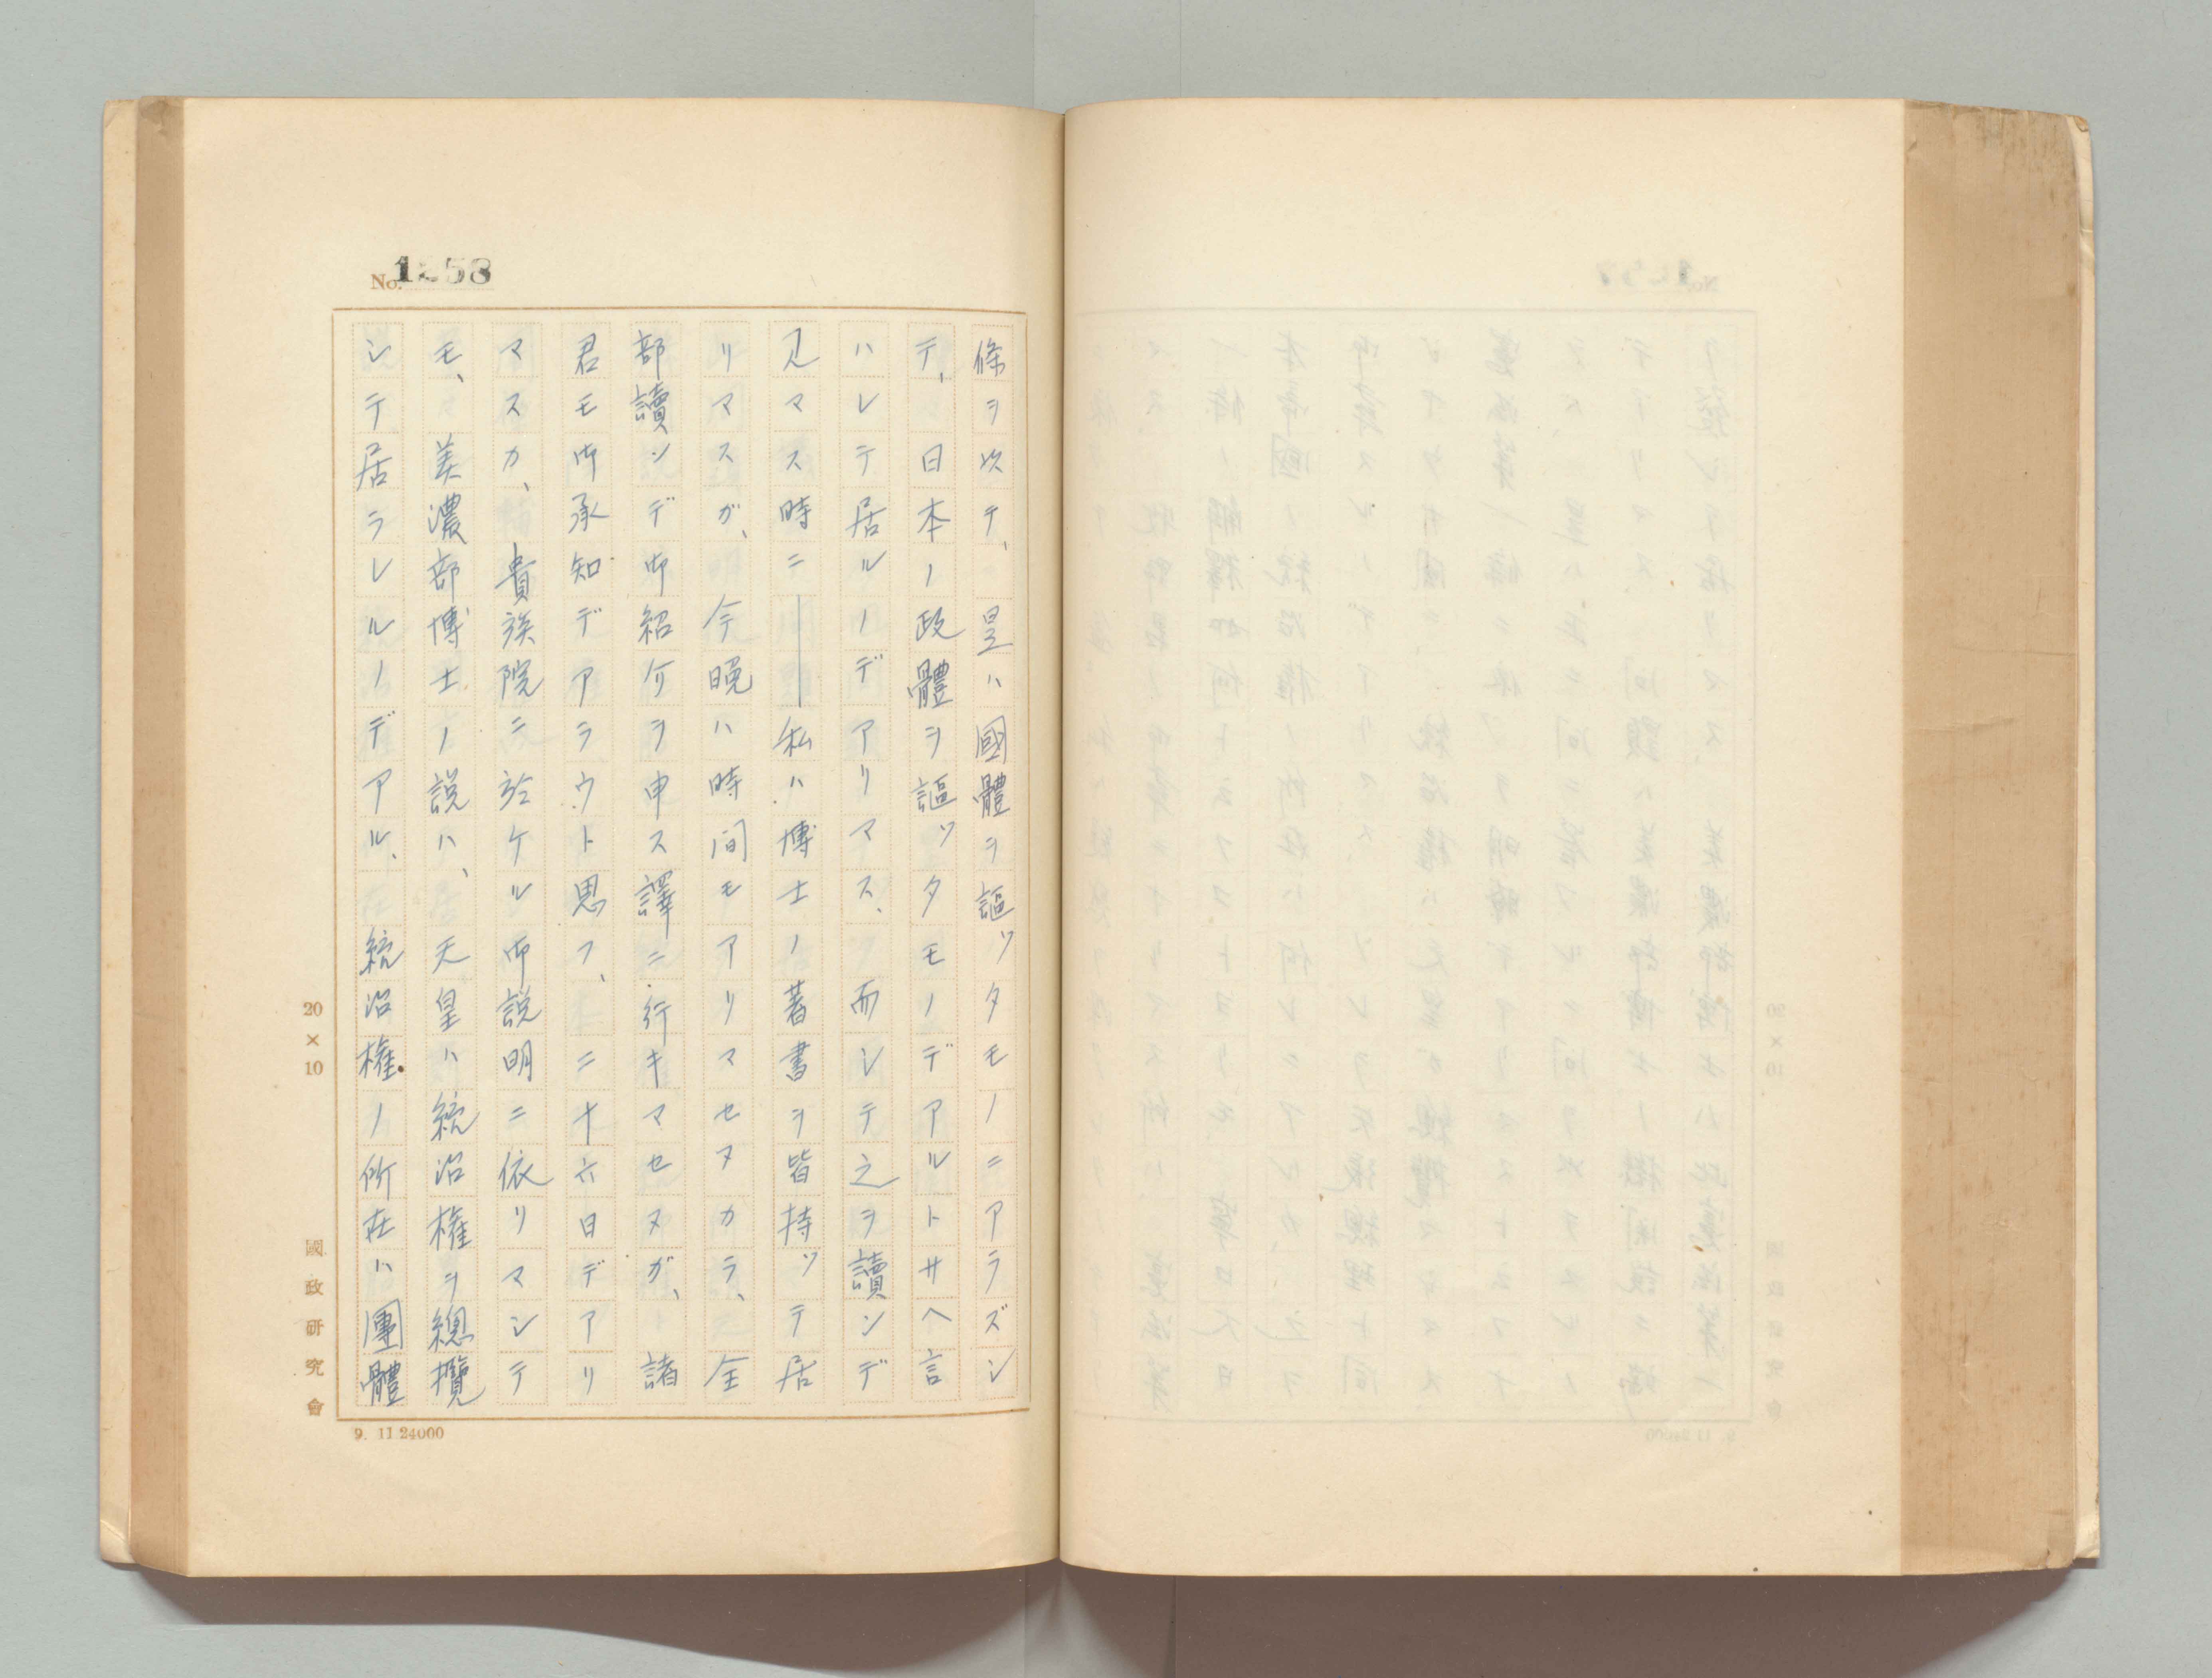 No. 1258
條ヲ以テ、是ハ國體ヲ謳ツタモノニアラズシ
テ、日本ノ政體ヲ謳ツタモノデアルトサヘ言
ハレテ居ルノデアリマス、而シテ之ヲ讀ンデ
見マス時ニ――私ハ博士ノ著書ヲ皆持ツテ居
リマスガ、今晩ハ時間モアリマセヌカラ、全
部讀ンデ御紹介ヲ申ス譯ニ行キマセヌガ、諸
君モ御承知デアラウト思フ、二十六日デアリ
マスカ、貴族院ニ於ケル御説明ニ依リマシテ
モ、美濃部博士ノ説ハ、天皇ハ統治權ヲ總攬
シテ居ラレルノデアル、統治權ノ所在ハ團體
20×10
國政研究會
9. 11 24000